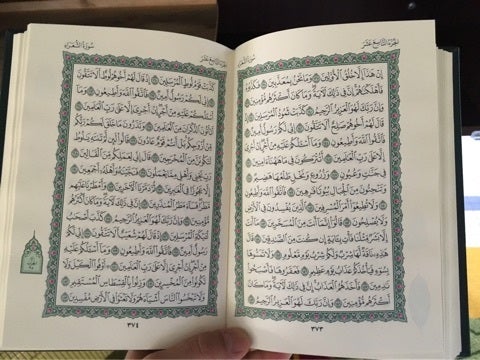 الجزء التاسع عشر
سورة الشعراء
إِنْ هَٰذَا إِلَّا خُلُقُ الْأَوَّلِينَ ١٣٧ وَمَا نَحْنُ بِمُعَذَّبِينَ ١٣٨ فَكَذَّبُوهُ
فَأَهْلَكْنَٰهُمْ إِنَّ فِي ذَٰلِكَ لَآيَةً وَمَا كَانَ أَكْثَرُهُم مُّؤْمِنِينَ ١٣٩
وَإِنَّ رَبَّكَ لَهُوَ الْعَزِيزُ الرَّحِيمُ ١٤٠ كَذَّبَتْ ثَمُودُ الْمُرْسَلِينَ ١٤١ إِذْ
قَالَ لَهُمْ أَخُوهُمْ صَٰلِحٌ أَلَا تَتَّقُونَ ١٤٢ إِنِّي لَكُمْ رَسُولٌ أَمِينٌ ١٤٣
فَاتَّقُوا اللَّهَ وَأَطِيعُونِ ١٤٤ وَمَا أَسْـَٔلُكُمْ عَلَيْهِ مِنْ أَجْرٍ إِنْ أَجْرِيَ
إِلَّا عَلَىٰ رَبِّ الْعَٰلَمِينَ ١٤٥ أَتُتْرَكُونَ فِي مَا هَٰهُنَا آمِنِينَ ١٤٦
فِي جَنَّٰتٍ وَعُيُونٍ ١٤٧ وَزُرُوعٍ وَنَخْلٍ طَلْعُهَا هَضِيمٌ ١٤٨
وَتَنْحِتُونَ مِنَ الْجِبَالِ بُيُوتًا فَٰرِهِينَ ١٤٩ فَاتَّقُوا اللَّهَ وَأَطِيعُونِ ١٥٠
وَلَا تُطِيعُوا أَمْرَ الْمُسْرِفِينَ ١٥١ الَّذِينَ يُفْسِدُونَ فِي الْأَرْضِ
وَلَا يُصْلِحُونَ ١٥٢ قَالُوا إِنَّمَا أَنتَ مِنَ الْمُسَحَّرِينَ ١٥٣ مَا أَنتَ
إِلَّا بَشَرٌ مِّثْلُنَا فَأْتِ بِآيَةٍ إِن كُنتَ مِنَ الصَّٰدِقِينَ ١٥٤ قَالَ
هَٰذِهِ نَاقَةٌ لَّهَا شِرْبٌ وَلَكُمْ شِرْبُ يَوْمٍ مَّعْلُومٍ ١٥٥ وَلَا تَمَسُّوهَا
بِسُوءٍ فَيَأْخُذَكُمْ عَذَابُ يَوْمٍ عَظِيمٍ ١٥٦ فَعَقَرُوهَا فَأَصْبَحُوا
نَٰدِمِينَ ١٥٧ فَأَخَذَهُمُ الْعَذَابُ إِنَّ فِي ذَٰلِكَ لَآيَةً وَمَا كَانَ
أَكْثَرُهُم مُّؤْمِنِينَ ١٥٨ وَإِنَّ رَبَّكَ لَهُوَ الْعَزِيزُ الرَّحِيمُ ١٥٩
٣٧٣
الجزء التاسع عشر
سورة الشعراء
كَذَّبَتْ قَوْمُ لُوطٍ الْمُرْسَلِينَ ١٦٠ إِذْ قَالَ لَهُمْ أَخُوهُمْ لُوطٌ أَلَا تَتَّقُونَ ١٦١
إِنِّي لَكُمْ رَسُولٌ أَمِينٌ ١٦٢ فَاتَّقُوا اللَّهَ وَأَطِيعُونِ ١٦٣ وَمَا
أَسْـَٔلُكُمْ عَلَيْهِ مِنْ أَجْرٍ إِنْ أَجْرِيَ إِلَّا عَلَىٰ رَبِّ الْعَٰلَمِينَ ١٦٤
أَتَأْتُونَ الذُّكْرَانَ مِنَ الْعَٰلَمِينَ ١٦٥ وَتَذَرُونَ مَا خَلَقَ لَكُمْ رَبُّكُم
مِّنْ أَزْوَٰجِكُم بَلْ أَنتُمْ قَوْمٌ عَادُونَ ١٦٦ قَالُوا لَئِن لَّمْ تَنتَهِ يَٰلُوطُ
لَتَكُونَنَّ مِنَ الْمُخْرَجِينَ ١٦٧ قَالَ إِنِّي لِعَمَلِكُم مِّنَ الْقَالِينَ ١٦٨
رَبِّ نَجِّنِي وَأَهْلِي مِمَّا يَعْمَلُونَ ١٦٩ فَنَجَّيْنَٰهُ وَأَهْلَهُ أَجْمَعِينَ ١٧٠
إِلَّا عَجُوزًا فِي الْغَٰبِرِينَ ١٧١ ثُمَّ دَمَّرْنَا الْآخَرِينَ ١٧٢ وَأَمْطَرْنَا عَلَيْهِم
مَّطَرًا فَسَاءَ مَطَرُ الْمُنذَرِينَ ١٧٣ إِنَّ فِي ذَٰلِكَ لَآيَةً وَمَا كَانَ أَكْثَرُهُم
مُّؤْمِنِينَ ١٧٤ وَإِنَّ رَبَّكَ لَهُوَ الْعَزِيزُ الرَّحِيمُ ١٧٥ كَذَّبَ أَصْحَٰبُ
لْـَٔيْكَةِ الْمُرْسَلِينَ ١٧٦ إِذْ قَالَ لَهُمْ شُعَيْبٌ أَلَا تَتَّقُونَ ١٧٧ إِنِّي لَكُمْ
رَسُولٌ أَمِينٌ ١٧٨ فَاتَّقُوا اللَّهَ وَأَطِيعُونِ ١٧٩ وَمَا أَسْـَٔلُكُمْ عَلَيْهِ
مِنْ أَجْرٍ إِنْ أَجْرِيَ إِلَّا عَلَىٰ رَبِّ الْعَٰلَمِينَ ١٨٠ أَوْفُوا الْكَيْلَ وَلَا
تَكُونُوا مِنَ الْمُخْسِرِينَ ١٨١ وَزِنُوا بِالْقِسْطَاسِ الْمُسْتَقِيمِ ١٨٢
وَلَا تَبْخَسُوا النَّاسَ أَشْيَاءَهُمْ وَلَا تَعْثَوْا فِي الْأَرْضِ مُفْسِدِينَ ١٨٣
٣٧٤